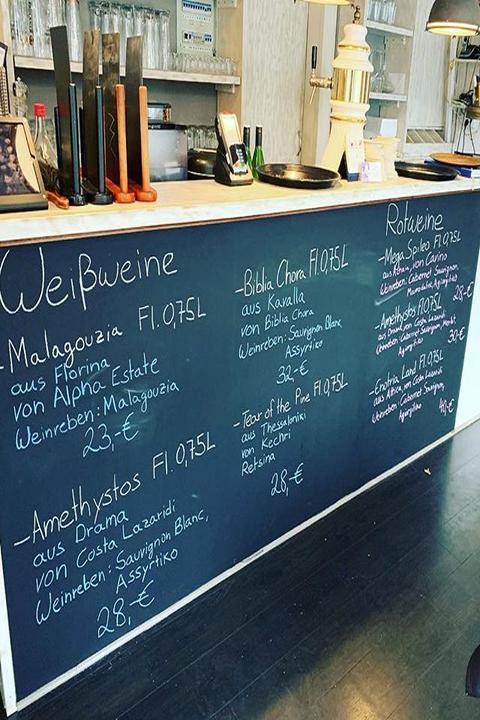 Weißweine
-Malagouzia Fl. 0,75L
aus Florina
von Alpha Estate
Weinreben: Malagouzia
23,-€
-Amethystos Fl. 0,75L
aus Drama
von Costa Lazaridi
Weinreben: Sauvignon Blanc,
Assyrtiko
28,-€
-Biblia Chora Fl. 0,75L
aus Kavalla
von Biblia Chora
Weinreben: Sauvignon Blanc,
Assyrtiko
32,-€
-Tear of the Pine Fl. 0,75L
aus Thessaloniki
von Kechri
Retsina
28,-€
Rotweine
-Mega Spileo Fl. 0,75L
aus Achaia, von Cavino
Weinreben: Cabernet Sauvignon,
28,-€
-Amethystos Fl. 0,75L
aus Drama, von Costa Lazaridi
Weinreben: Cabernet Sauvignon, Merlot,
Agiorgitiko
30,-€
-Enotria Land Fl. 0,75L
aus Attica, von Costa Lazaridi
Weinreben: Cabernet Sauvignon,
Agiorgitiko
40,-€